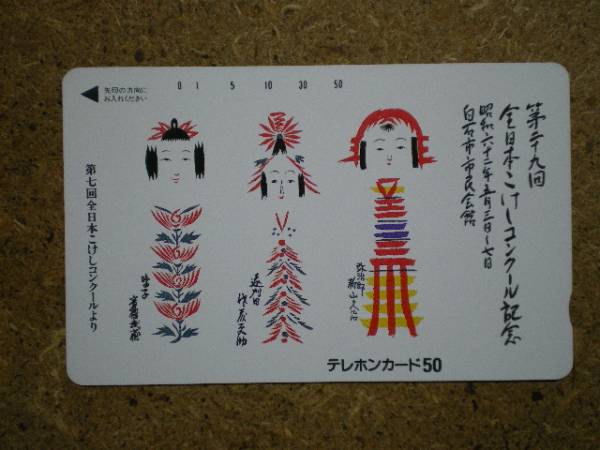 矢印の方向に
お入れください
0 1 5 10 30 50
第二十九回
全日本こけしコンクール記念
昭和六十二年五月三日～七日
白石市市民会館
弥治郎
新山久治
遠刈田
鳴子
高橋武蔵
第七回全日本こけしコンクールより
テレホンカード50